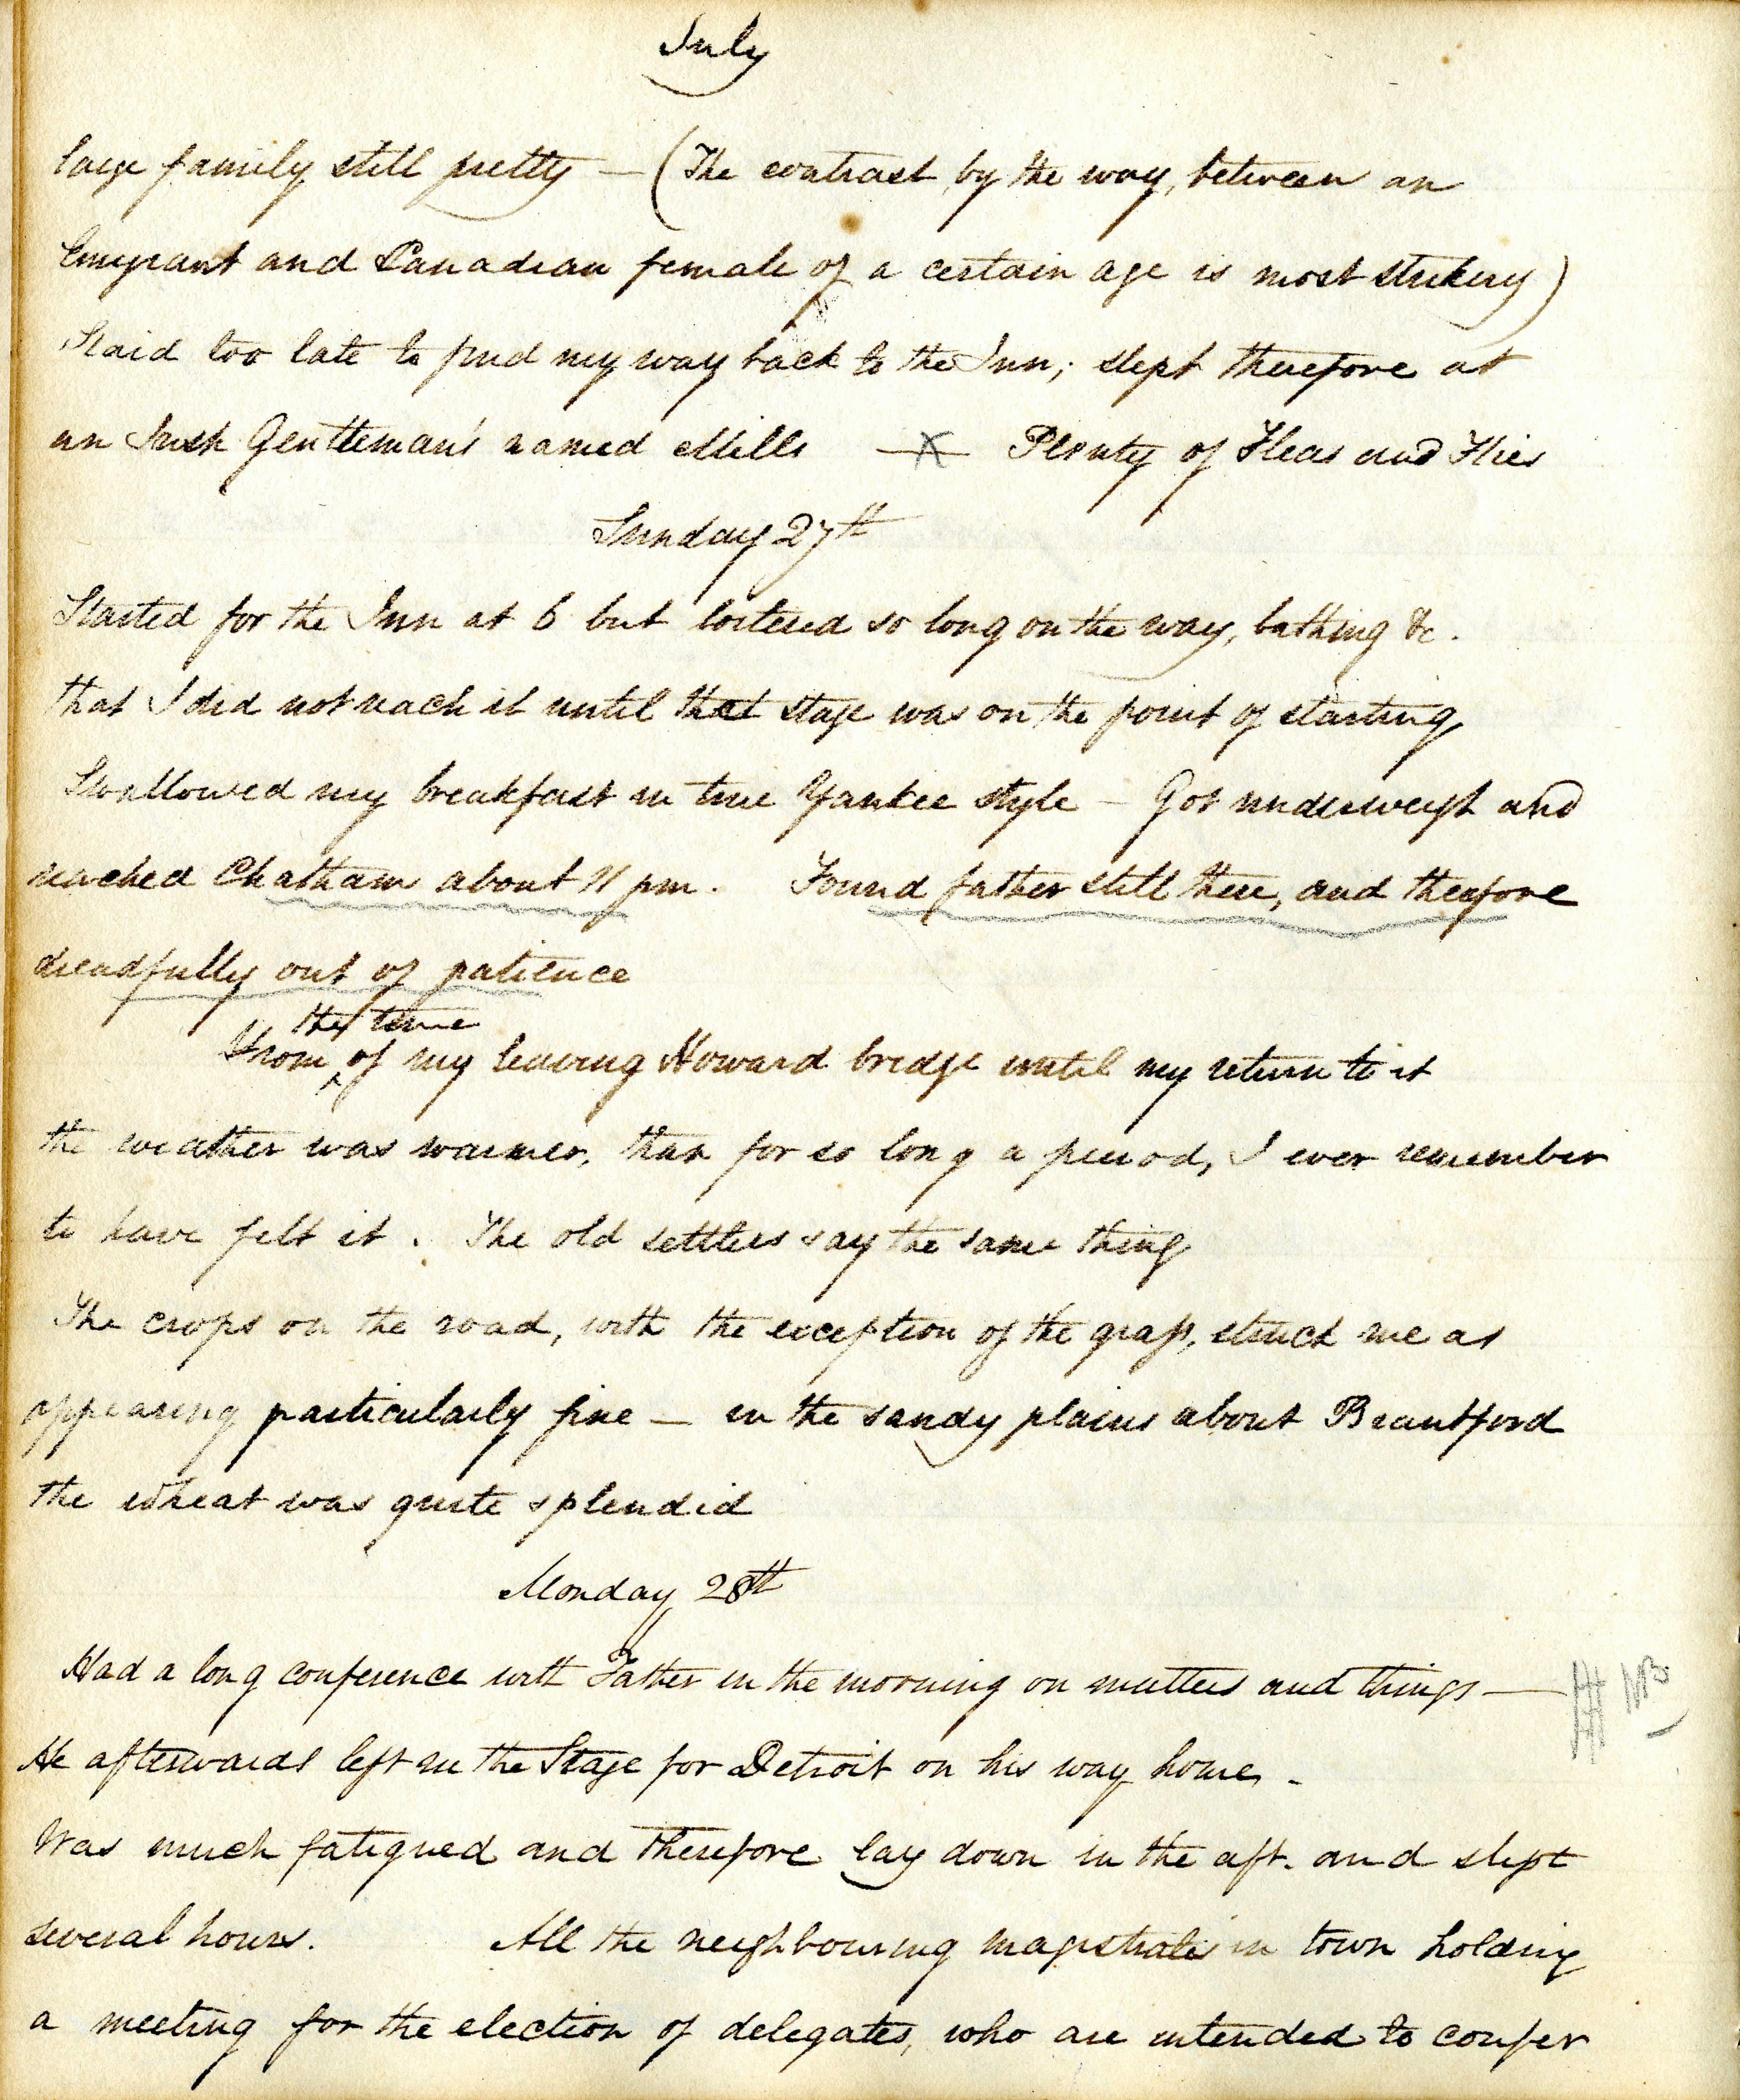 July
large family still pretty — (The contrast, by the way, between an
Emigrant and Canadian female of a certain age is most striking)
Staid too late to find my way back to the Inn; slept therefore at
an Irish Gentleman's named Mills — X — Plenty of Fleas and Flies
Sunday 27th
Started for the Inn at 6 but loitered so long on the way, bathing &c.
that I did not reach it until that stage was on the point of starting
Swallowed my breakfast in true Yankee style — Got underweigh and
reached Chatham about 11 pm. Found father still there, and therefore
dreadfully out of patience
the time
From ^ of my leaving Howard bridge until my return to it
the weather was warmer, than for so long a period, I ever remember
to have felt it. The old settlers say the same thing
The crops on the road, with the exception of the grass, struck me as
appearing particularly fine — in the sandy plains about Brantford
the wheat was quite splendid
Monday 28th
Had a long conference with Father in the morning on matters and things —
He afterwards left in the Stage for Detroit on his way home -
Was much fatigued and therefore lay down in the aft. and slept
several hours. All the neighbouring magistrates in town holding
a meeting for the election of delegates, who are intended to confer